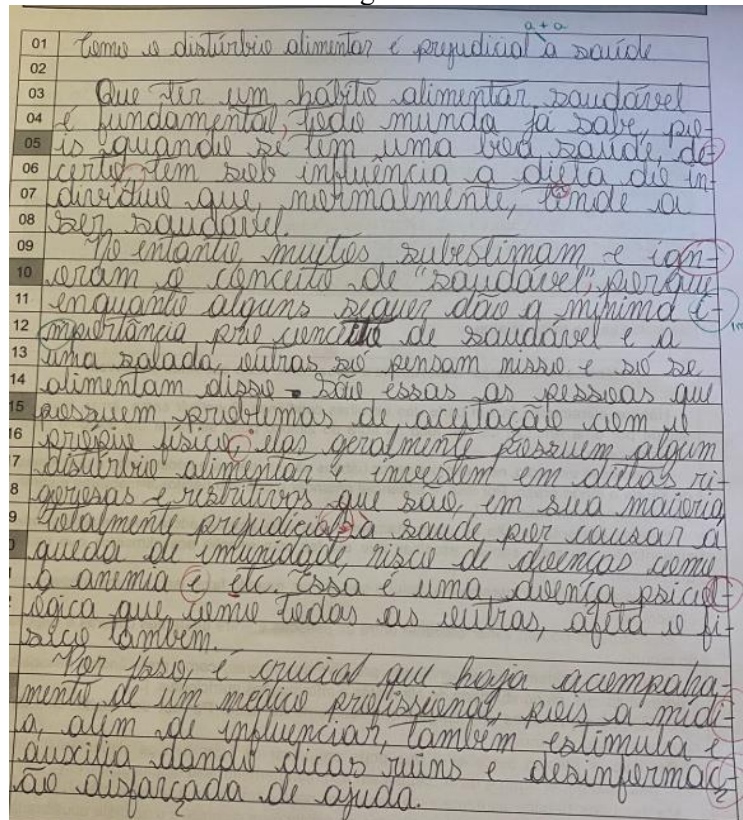 a + a
01 Como o distúrbio alimentar é prejudicial a saúde
02
03 Que ter um hábito alimentar saudável
04 é fundamental, todo mundo já sabe, po-
05 is quando se tem uma boa saúde, de
06 certo tem sob influência a dieta do in-
07 divíduo que, normalmente, tende a
08 ser saudável.
09 No entanto, muitos subestimam e ign-
10 oram o conceito de "saudável", porque
11 enquanto alguns sequer dão a mínima i-
12 mportância pro conceito de saudável e a
13 uma salada, outras só pensam nisso e só se
14 alimentam disso. São essas as pessoas que
15 possuem problemas de aceitação com o
16 própio físico, elas geralmente possuem algum
7 distúrbio alimentar e investem em dietas ri-
8 gorosas e restritivas que são, em sua maioria
9 totalmente prejudiciais a saúde, por causar a
queda de imunidade, risco de doenças como
a anemia e etc. Essa é uma doença psicol-
ógica que, como todas as outras, afeta o fí-
sico também.
Por isso, é crucial que haja acompanha-
mento de um médico profissional, pois a mídi-
a, além de influenciar, também estimula e
auxilia dando dicas ruins e desinformaç-
ão disfarçada de ajuda.